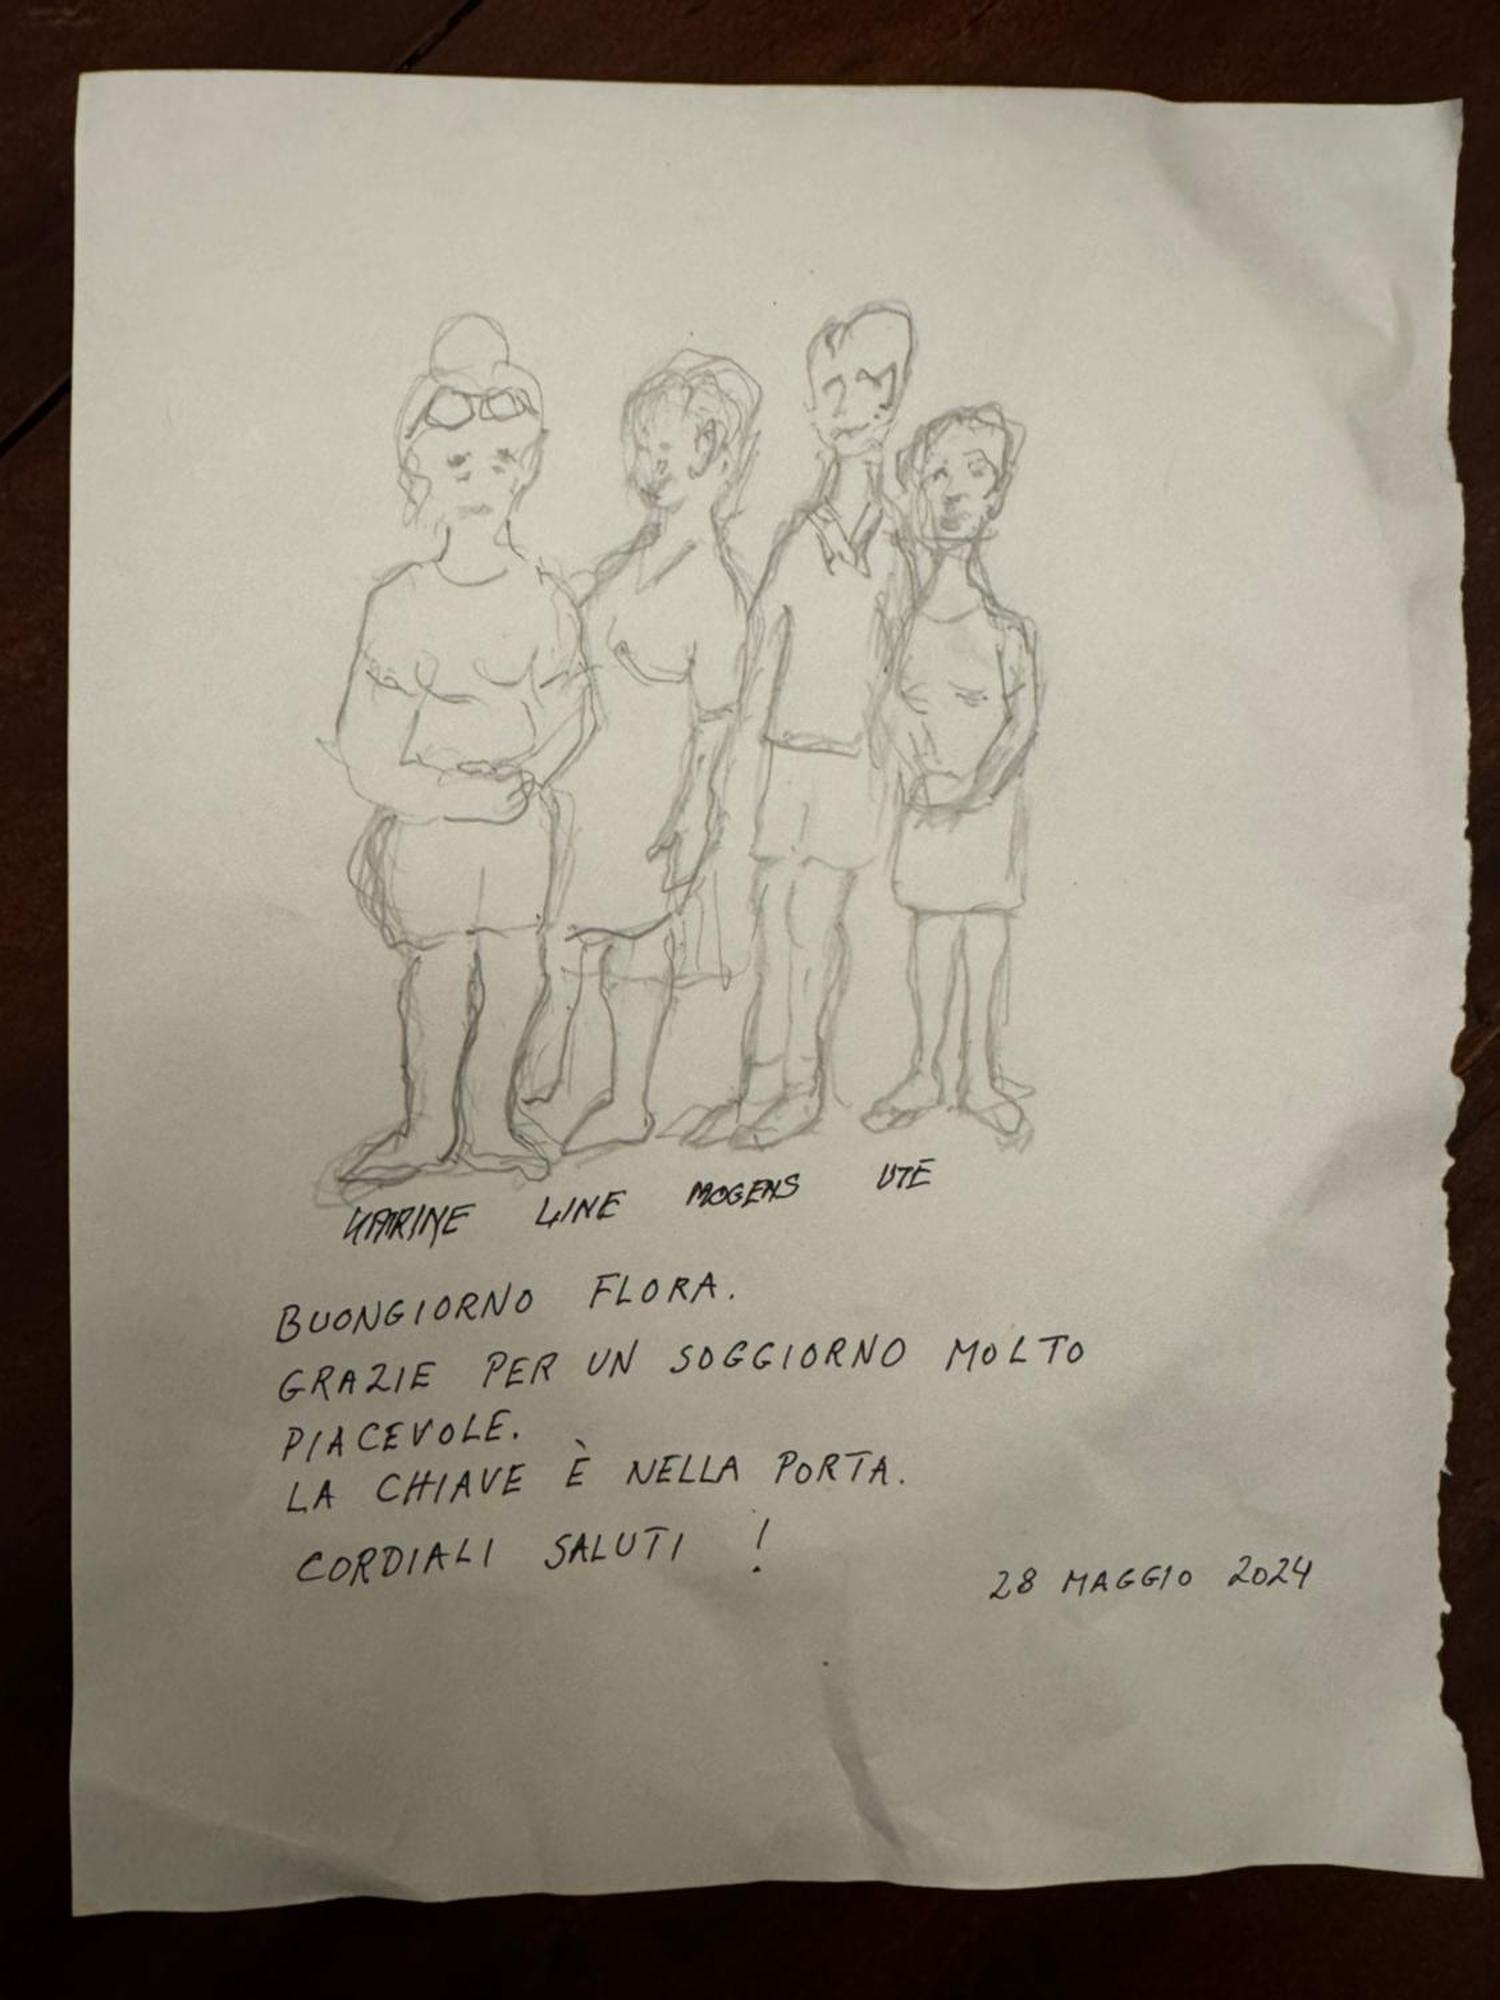 KATRINE LINE MOGENS UTE
BUONGIORNO FLORA.
GRAZIE PER UN SOGGIORNO MOLTO
PIACEVOLE.
LA CHIAVE È NELLA PORTA.
CORDIALI SALUTI !
28 MAGGIO 2024